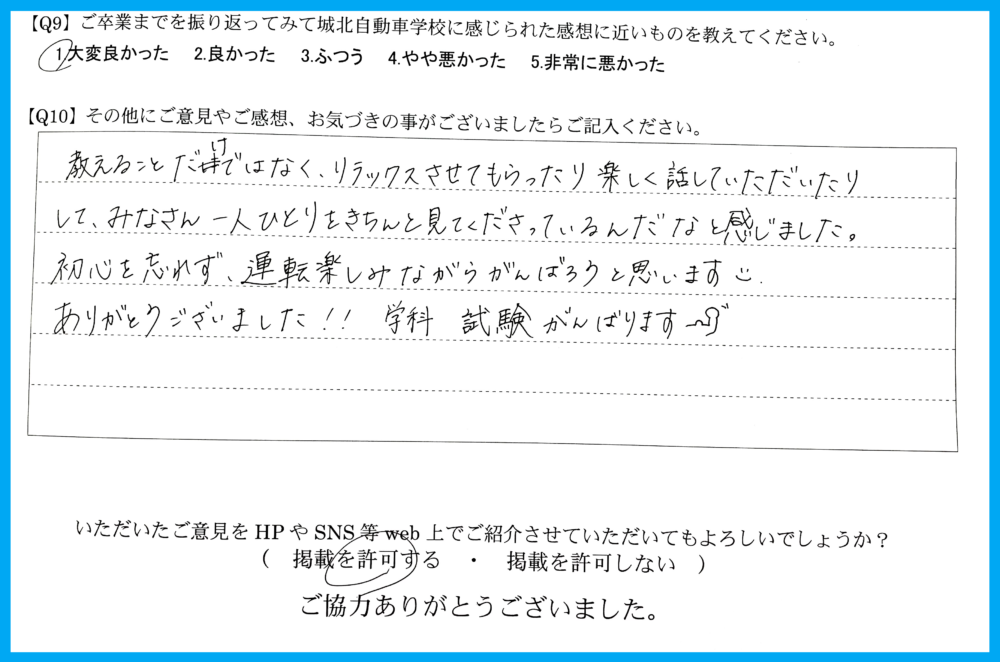 【Q9】ご卒業までを振り返ってみて城北自動車学校に感じられた感想に近いものを教えてください。
1.大変良かった 2.良かった 3.ふつう 4.やや悪かった 5.非常に悪かった
【Q10】その他にご意見やご感想、お気づきの事がございましたらご記入ください。
教えることだけではなく、リラックスさせてもらったり楽しく話していただいたり
して、みなさん一人ひとりをきちんと見てくださっているんだなと感じました。
初心を忘れず、運転楽しみながらがんばろうと思います
ありがとうございました!! 学科 試験がんばります
いただいたご意見をHPやSNS等web上でご紹介させていただいてもよろしいでしょうか?
( 掲載を許可する ・ 掲載を許可しない )
ご協力ありがとうございました。